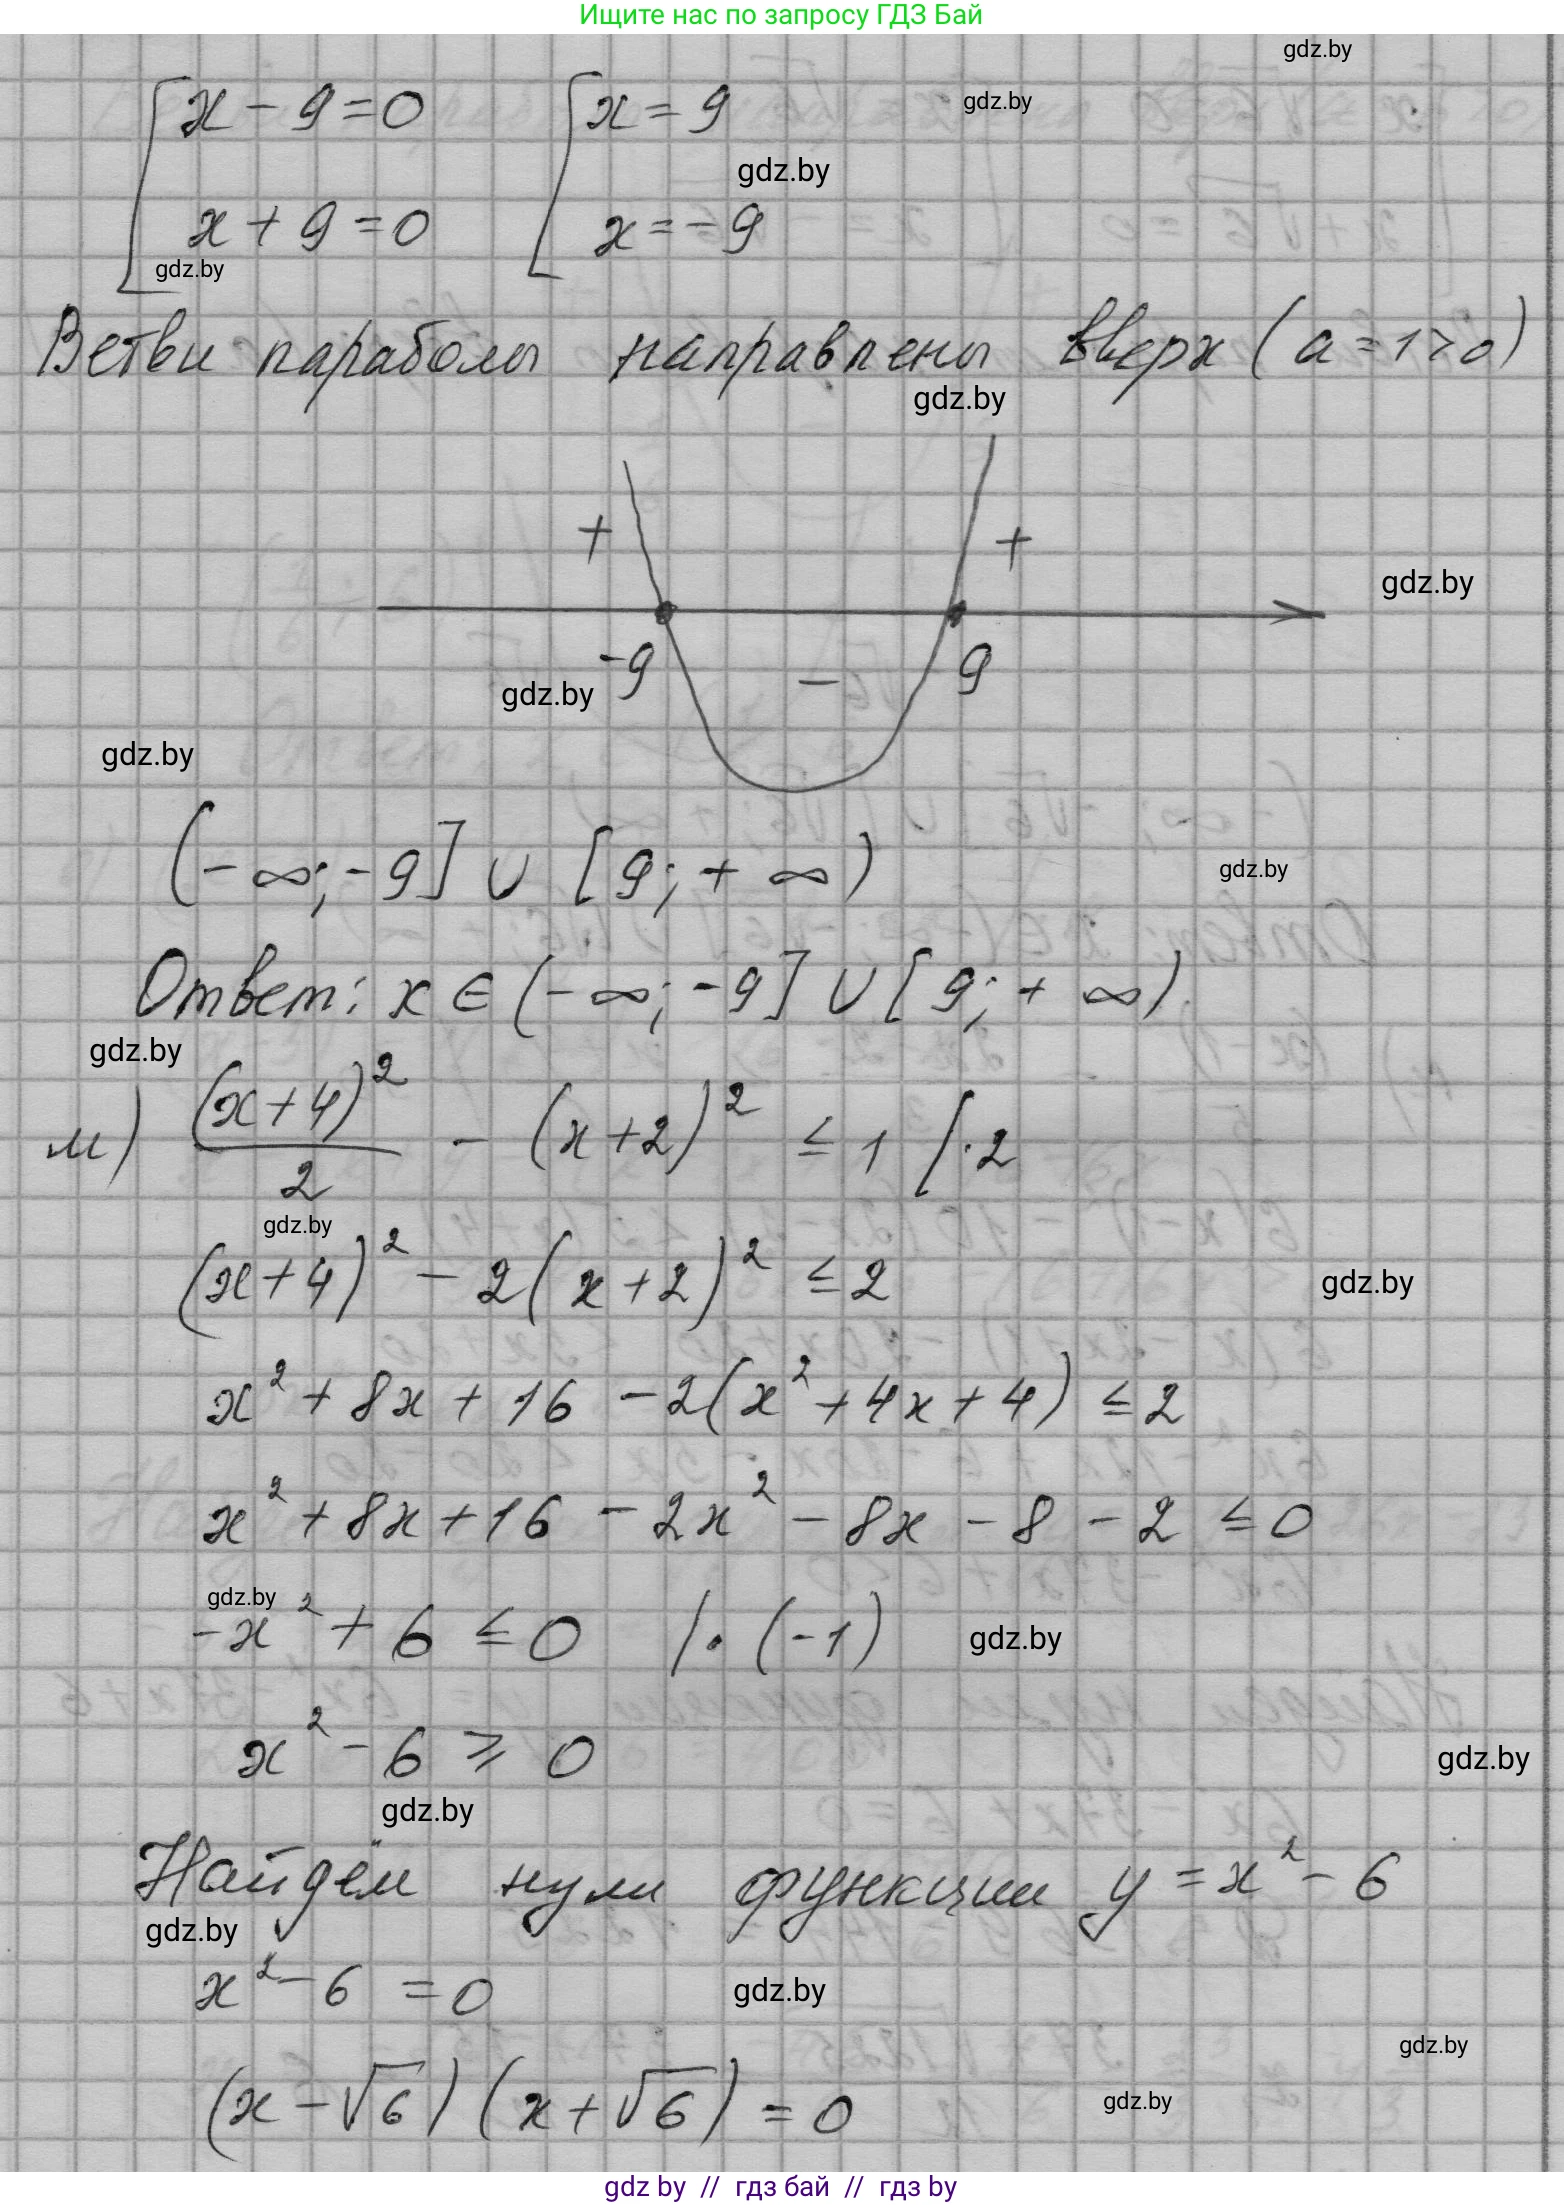 Ищите нас по запросу ГДЗ Бай
gdz.by
x - 9 = 0 x = 9 gdz.by
gdz.by
x + 9 = 0 x = -9
gdz.by
Ветви параболы направлены вверх (a = 1 > 0)
gdz.by
+ +
gdz.by
-9 - 9
gdz.by
gdz.by
(-∞; -9] ∪ [9; +∞)
gdz.by
Ответ: x ∈ (-∞; -9] ∪ [9; +∞).
gdz.by
м) (x+4)²/2 - (x+2)² ≤ 1 | · 2
gdz.by
(x+4)² - 2(x+2)² ≤ 2
gdz.by
x² + 8x + 16 - 2(x² + 4x + 4) ≤ 2
x² + 8x + 16 - 2x² - 8x - 8 - 2 ≤ 0
gdz.by
-x² + 6 ≤ 0 | · (-1)
gdz.by
x² - 6 ≥ 0
gdz.by
gdz.by
Найдём нули функции y = x² - 6
gdz.by
x² - 6 = 0
gdz.by
gdz.by
(x - √6)(x + √6) = 0
gdz.by
gdz by // гдз бай // гдз by